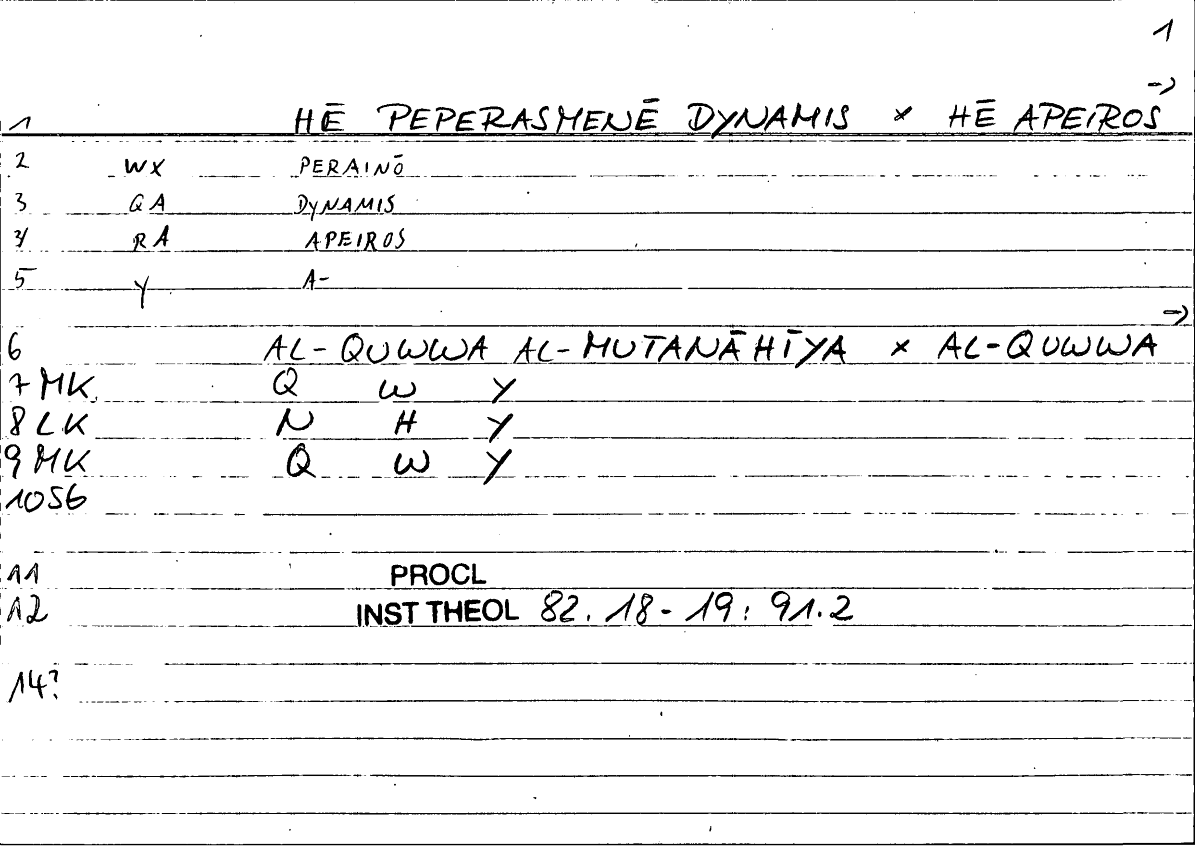 1
→
1 HĒ PEPERASMENĒ DYNAMIS × HĒ APEIROS
2 WX PERAINŌ
3 QA DYNAMIS
4 RA APEIROS
5 Y A-
→
6 AL-QUWWA AL-MUTANĀHĪYA × AL-QUWWA
7 MK Q W Y
8 LK N H Y
9 MK Q W Y
10 56
11 PROCL
12 INST THEOL 82.18-19: 91.2
14?